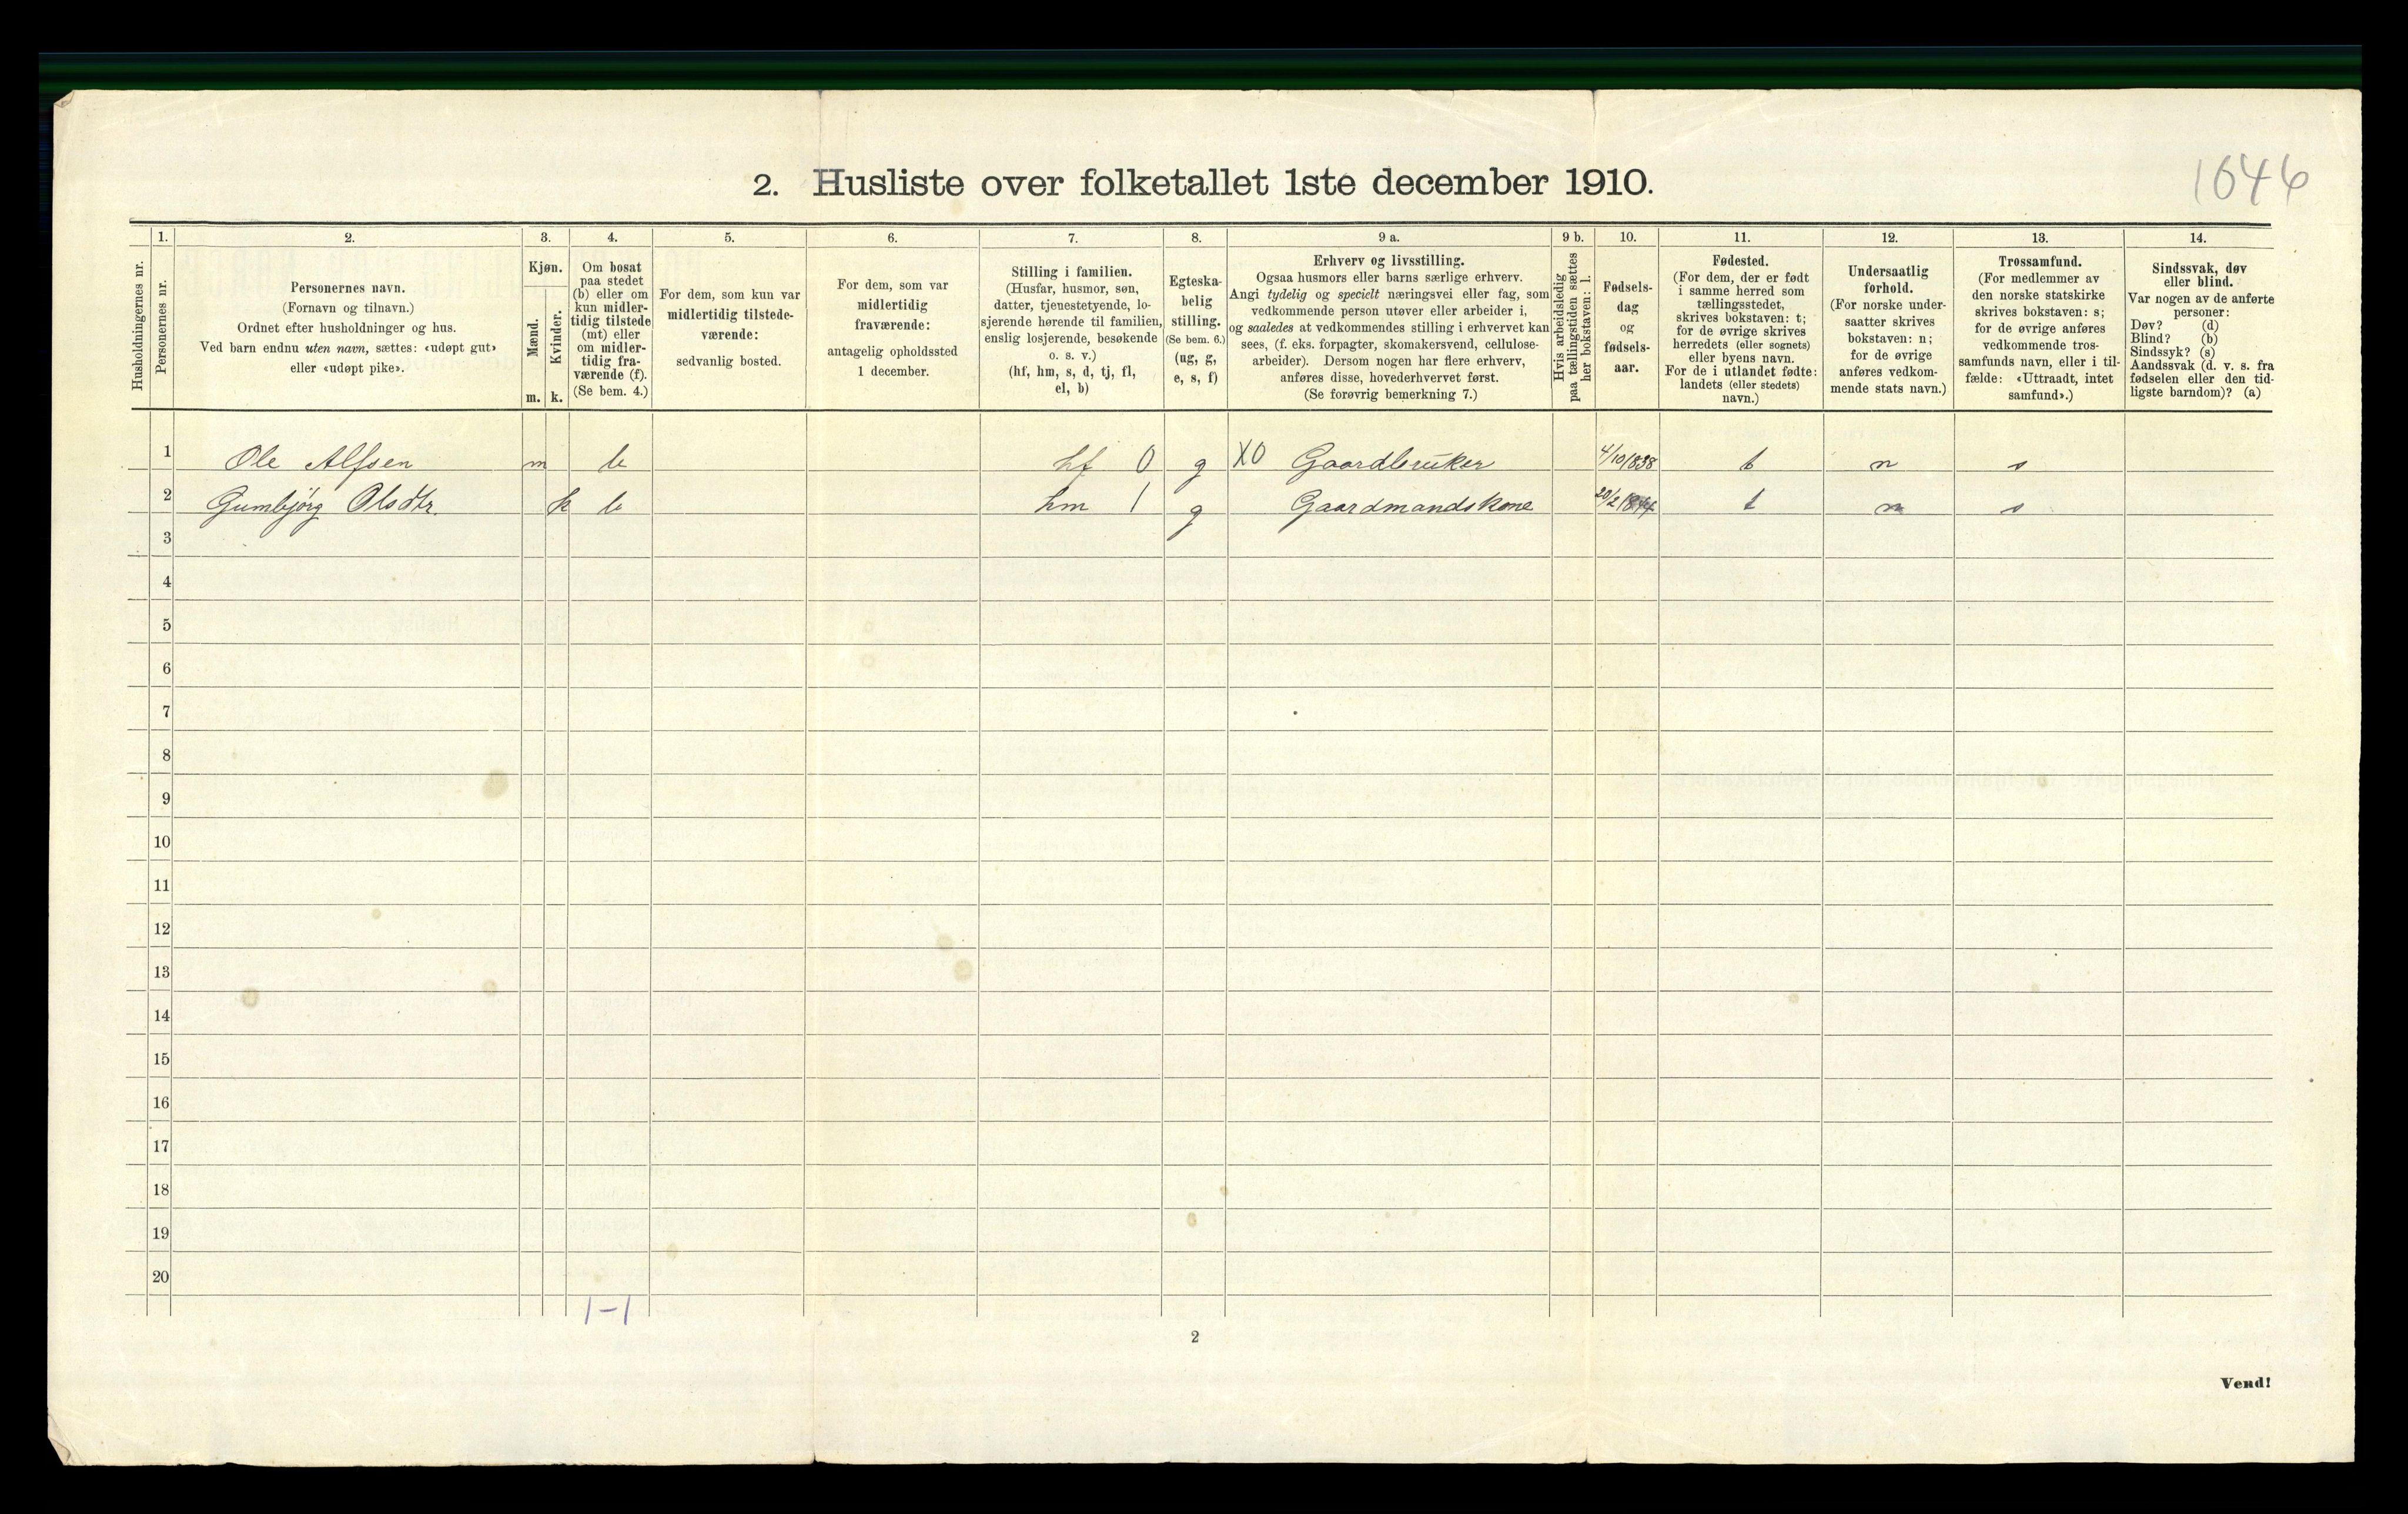 1646
2. Husliste over folketallet 1ste december 1910.
Husholdningernes nr.
1.
Personernes nr.
2.
Personernes navn.
(Fornavn og tilnavn.)
Ordnet efter husholdninger og hus.
Ved barn endnu uten navn, sættes: «udøpt gut»
eller «udøpt pike».
3.
Kjøn.
Mænd.
Kvinder.
m. k.
4.
Om bosat
paa stedet
(b) eller om
kun midler-
tidig tilstede
(mt) eller
om midler-
tidig fra-
værende (f).
(Se bem. 4.)
5.
For dem, som kun var
midlertidig tilstede-
værende:
sedvanlig bosted.
6.
For dem, som var
midlertidig
fraværende:
antagelig opholdssted
1 december.
7.
Stilling i familien.
(Husfar, husmor, søn,
datter, tjenestetyende, lo-
sjerende hørende til familien,
enslig losjerende, besøkende
o. s. v.)
(hf, hm, s, d, tj, fl,
el, b)
8.
Egteska-
belig
stilling.
(Se bem. 6.)
(ug, g,
e, s, f)
9 a.
Erhverv og livsstilling.
Ogsaa husmors eller barns særlige erhverv.
Angi tydelig og specielt næringsvei eller fag, som
vedkommende person utøver eller arbeider i,
og saaledes at vedkommendes stilling i erhvervet kan
sees, (f. eks. forpagter, skomakersvend, cellulose-
arbeider). Dersom nogen har flere erhverv,
anføres disse, hovederhvervet først.
(Se forøvrig bemerkning 7.)
9 b.
Hvis arbeidsledig
paa tællingstiden sættes
her bokstaven: l.
10.
Fødsels-
dag
og
fødsels-
aar.
11.
Fødested.
(For dem, der er født
i samme herred som
tællingsstedet,
skrives bokstaven: t;
for de øvrige skrives
herredets (eller sognets)
eller byens navn.
For de i utlandet fødte:
landets (eller stedets)
navn.)
12.
Undersaatlig
forhold.
(For norske under-
saatter skrives
bokstaven: n;
for de øvrige
anføres vedkom-
mende stats navn.)
13.
Trossamfund.
(For medlemmer av
den norske statskirke
skrives bokstaven: s;
for de øvrige anføres
vedkommende tros-
samfunds navn, eller i til-
fælde: «Uttraadt, intet
samfund».)
14.
Sindssvak, døv
eller blind.
Var nogen av de anførte
personer:
Døv? (d)
Blind? (b)
Sindssyk? (s)
Aandssvak (d. v. s. fra
fødselen eller den tid-
ligste barndom)? (a)
1 Ole Alfsen m b hf 0 g X0 Gaardbruker 4/10 1838 t n s
2 Gumbjörg Olsdtr. k b hm 1 g Gaardmandskone 20/2 t n s
3
4
5
6
7
8
9
10
11
12
13
14
15
16
17
18
19
20
1-1
2
Vend!